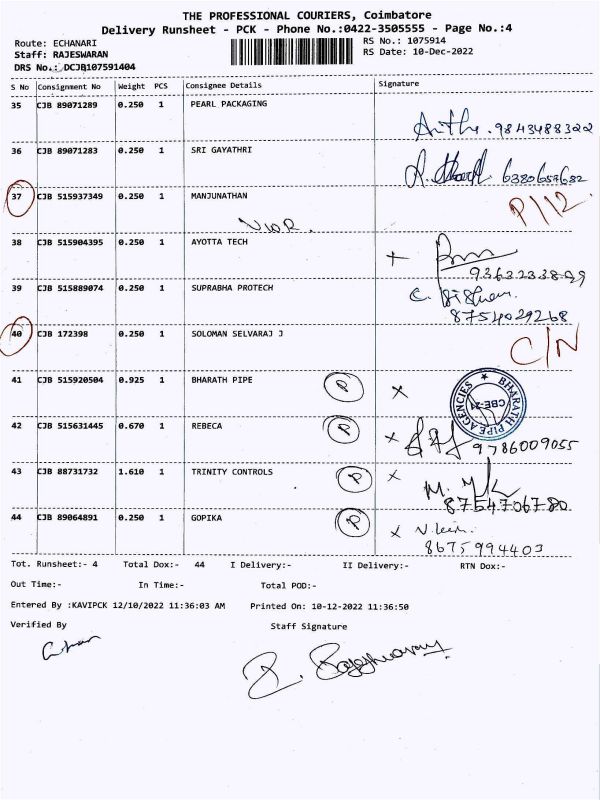 THE PROFESSIONAL COURIERS, Coimbatore
Delivery Runsheet - PCK - Phone No.:0422-3505555 - Page No.:4
Route: ECHANARI RS No.: 1075914
Staff: RAJESWARAN RS Date: 10-Dec-2022
DRS No.: DCJB107591404
S No Consignment No Weight PCS Consignee Details Signature
35 CJB 89071289 0.250 1 PEARL PACKAGING
9843488322
36 CJB 89071283 0.250 1 SRI GAYATHRI
6380657682
37 CJB 515937349 0.250 1 MANJUNATHAN P/12.
38 CJB 515904395 0.250 1 AYOTTA TECH
9363233899
39 CJB 515889074 0.250 1 SUPRABHA PROTECH
8754029268
40 CJB 172398 0.250 1 SOLOMAN SELVARAJ J C/N
41 CJB 515920504 0.925 1 BHARATH PIPE P X
BHARATH PIPE AGENCIES
CBE-21
42 CJB 515631445 0.670 1 REBECA P X
9786009055
43 CJB 88731732 1.610 1 TRINITY CONTROLS P X
8754706780
44 CJB 89064891 0.250 1 GOPIKA P X
8675994403
Tot. Runsheet:- 4 Total Dox:- 44 I Delivery:- II Delivery:- RTN Dox:-
Out Time:- In Time:- Total POD:-
Entered By :KAVIPCK 12/10/2022 11:36:03 AM Printed On: 10-12-2022 11:36:50
Verified By Staff Signature